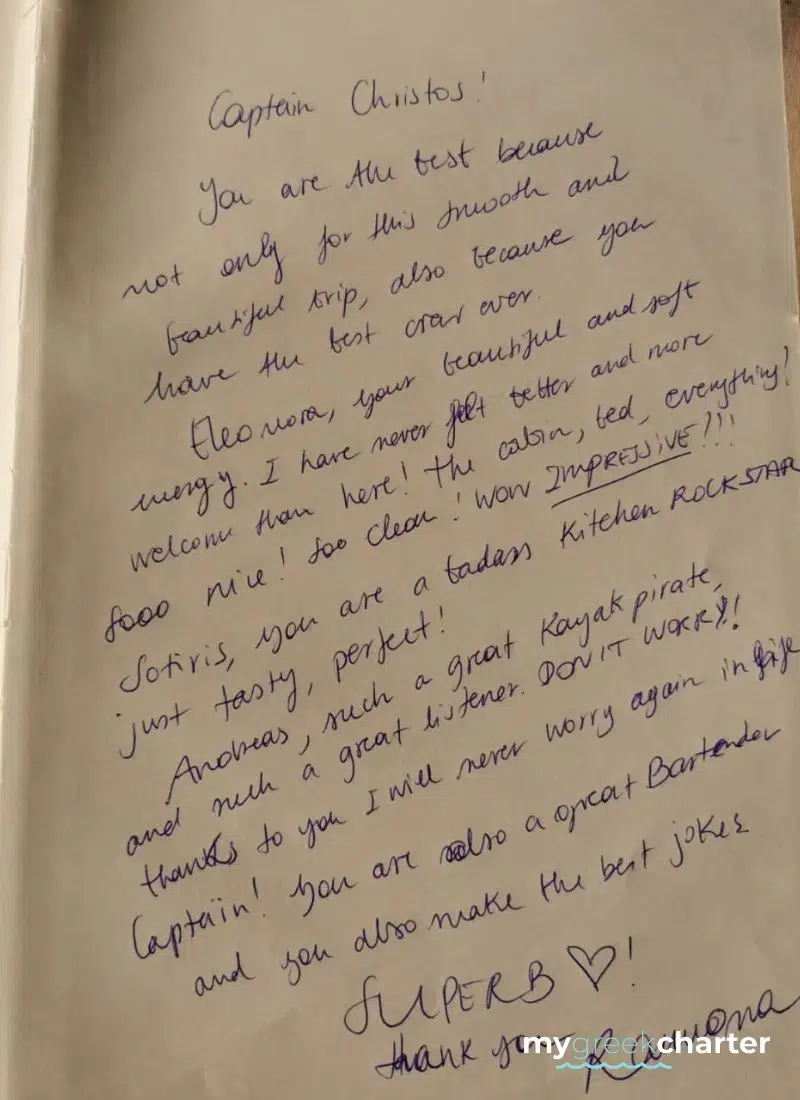 Captain Christos!
You are the best because
not only for this smooth and
beautiful trip, also because you
have the best crew ever.
Eleonora, your beautiful and soft
energy. I have never felt better and more
welcome than here! The cabin, bed, everything!
sooo nice! soo clean! WOW IMPRESSIVE!!!
Sotiris, you are a badass Kitchen ROCKSTAR
just tasty, perfect!
Andreas, such a great Kayak pirate,
and such a great listener. DON'T WORRY!!
thanks to you I will never worry again in life
Captain! You are also a great Bartender
and you also make the best jokes
SUPERB ♡!
thank you Ramona
mygreekcharter